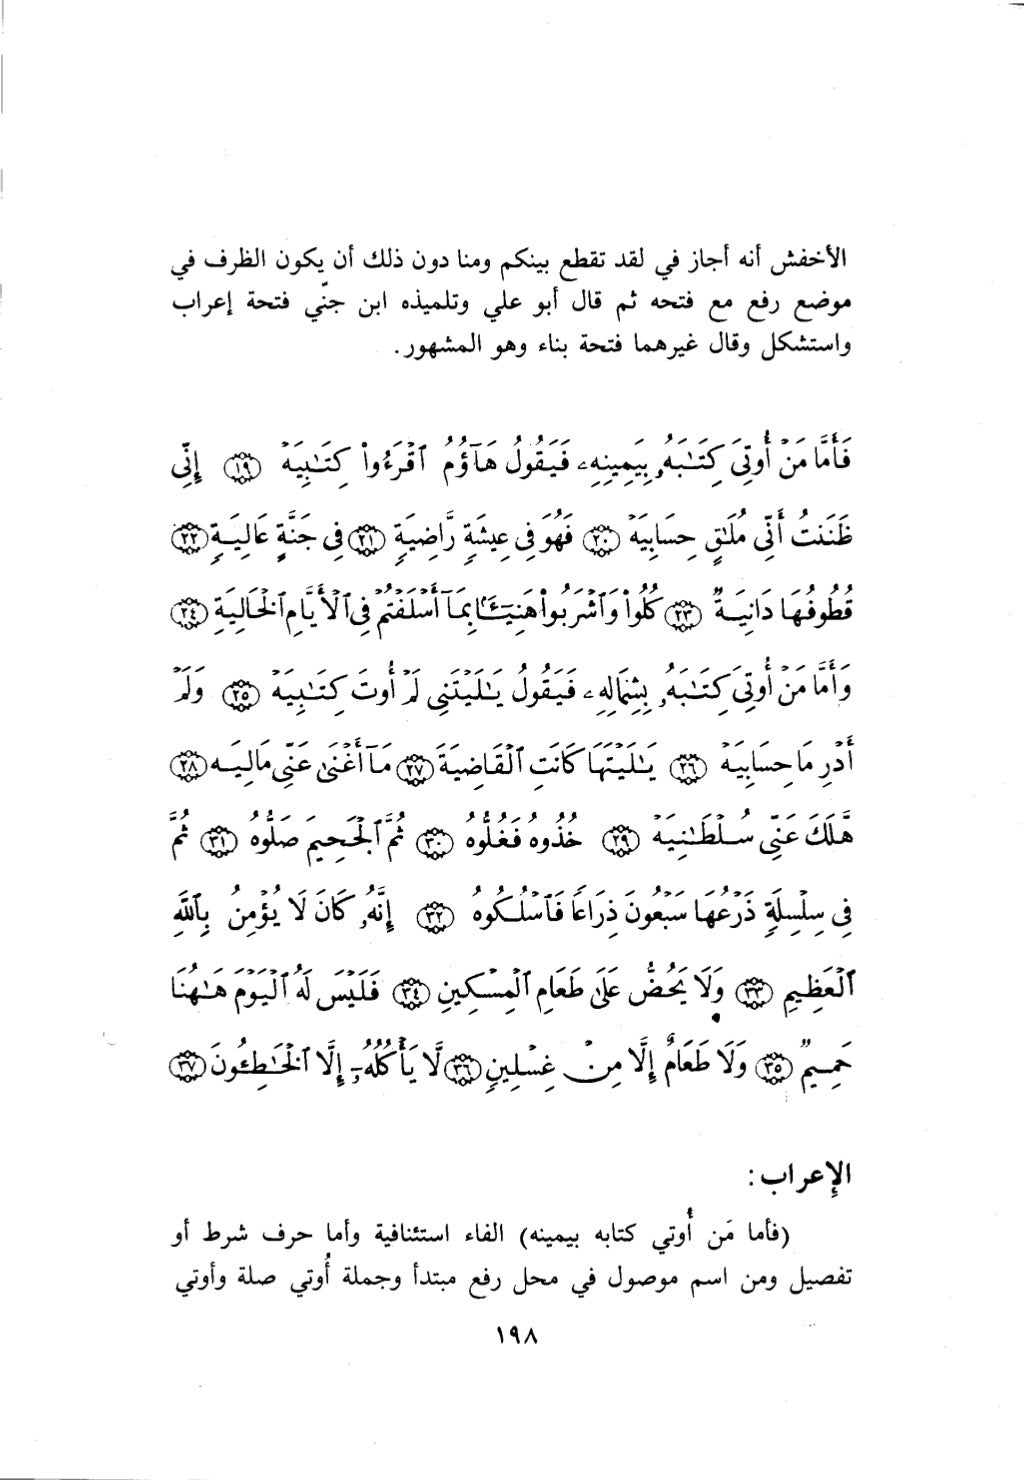 الأخفش أنه أجاز في لقد تقطع بينكم ومنا دون ذلك أن يكون الظرف في
موضع رفع مع فتحه ثم قال أبو علي وتلميذه ابن جنّي فتحة إعراب
واستشكل وقال غيرهما فتحة بناء وهو المشهور.
فَأَمَّا مَنْ أُوتِيَ كِتَٰبَهُۥ بِيَمِينِهِۦ فَيَقُولُ هَآؤُمُ ٱقْرَءُوا۟ كِتَٰبِيَهْ ﴿١٩﴾ إِنِّي
ظَنَنتُ أَنِّي مُلَٰقٍ حِسَابِيَهْ ﴿٢٠﴾ فَهُوَ فِي عِيشَةٍ رَّاضِيَةٍ ﴿٢١﴾ فِي جَنَّةٍ عَالِيَةٍ ﴿٢٢﴾
قُطُوفُهَا دَانِيَةٌ ﴿٢٣﴾ كُلُوا۟ وَٱشْرَبُوا۟ هَنِيٓـًٔا بِمَآ أَسْلَفْتُمْ فِي ٱلْأَيَّامِ ٱلْخَالِيَةِ ﴿٢٤﴾
وَأَمَّا مَنْ أُوتِيَ كِتَٰبَهُۥ بِشِمَالِهِۦ فَيَقُولُ يَٰلَيْتَنِي لَمْ أُوتَ كِتَٰبِيَهْ ﴿٢٥﴾ وَلَمْ
أَدْرِ مَا حِسَابِيَهْ ﴿٢٦﴾ يَٰلَيْتَهَا كَانَتِ ٱلْقَاضِيَةَ ﴿٢٧﴾ مَآ أَغْنَىٰ عَنِّي مَالِيَهْ ﴿٢٨﴾
هَّلَكَ عَنِّي سُلْطَٰنِيَهْ ﴿٢٩﴾ خُذُوهُ فَغُلُّوهُ ﴿٣٠﴾ ثُمَّ ٱلْجَحِيمَ صَلُّوهُ ﴿٣١﴾ ثُمَّ
فِي سِلْسِلَةٍ ذَرْعُهَا سَبْعُونَ ذِرَاعًا فَٱسْلُكُوهُ ﴿٣٢﴾ إِنَّهُۥ كَانَ لَا يُؤْمِنُ بِٱللَّهِ
ٱلْعَظِيمِ ﴿٣٣﴾ وَلَا يَحُضُّ عَلَىٰ طَعَامِ ٱلْمِسْكِينِ ﴿٣٤﴾ فَلَيْسَ لَهُ ٱلْيَوْمَ هَٰهُنَا
حَمِيمٌ ﴿٣٥﴾ وَلَا طَعَامٌ إِلَّا مِنْ غِسْلِينٍ ﴿٣٦﴾ لَّا يَأْكُلُهُۥٓ إِلَّا ٱلْخَٰطِـُٔونَ ﴿٣٧﴾
الإعراب :
(فأما مَن أُوتي كتابه بيمينه) الفاء استئنافية وأما حرف شرط أو
تفصيل ومن اسم موصول في محل رفع مبتدأ وجملة أُوتي صلة وأوتي
١٩٨